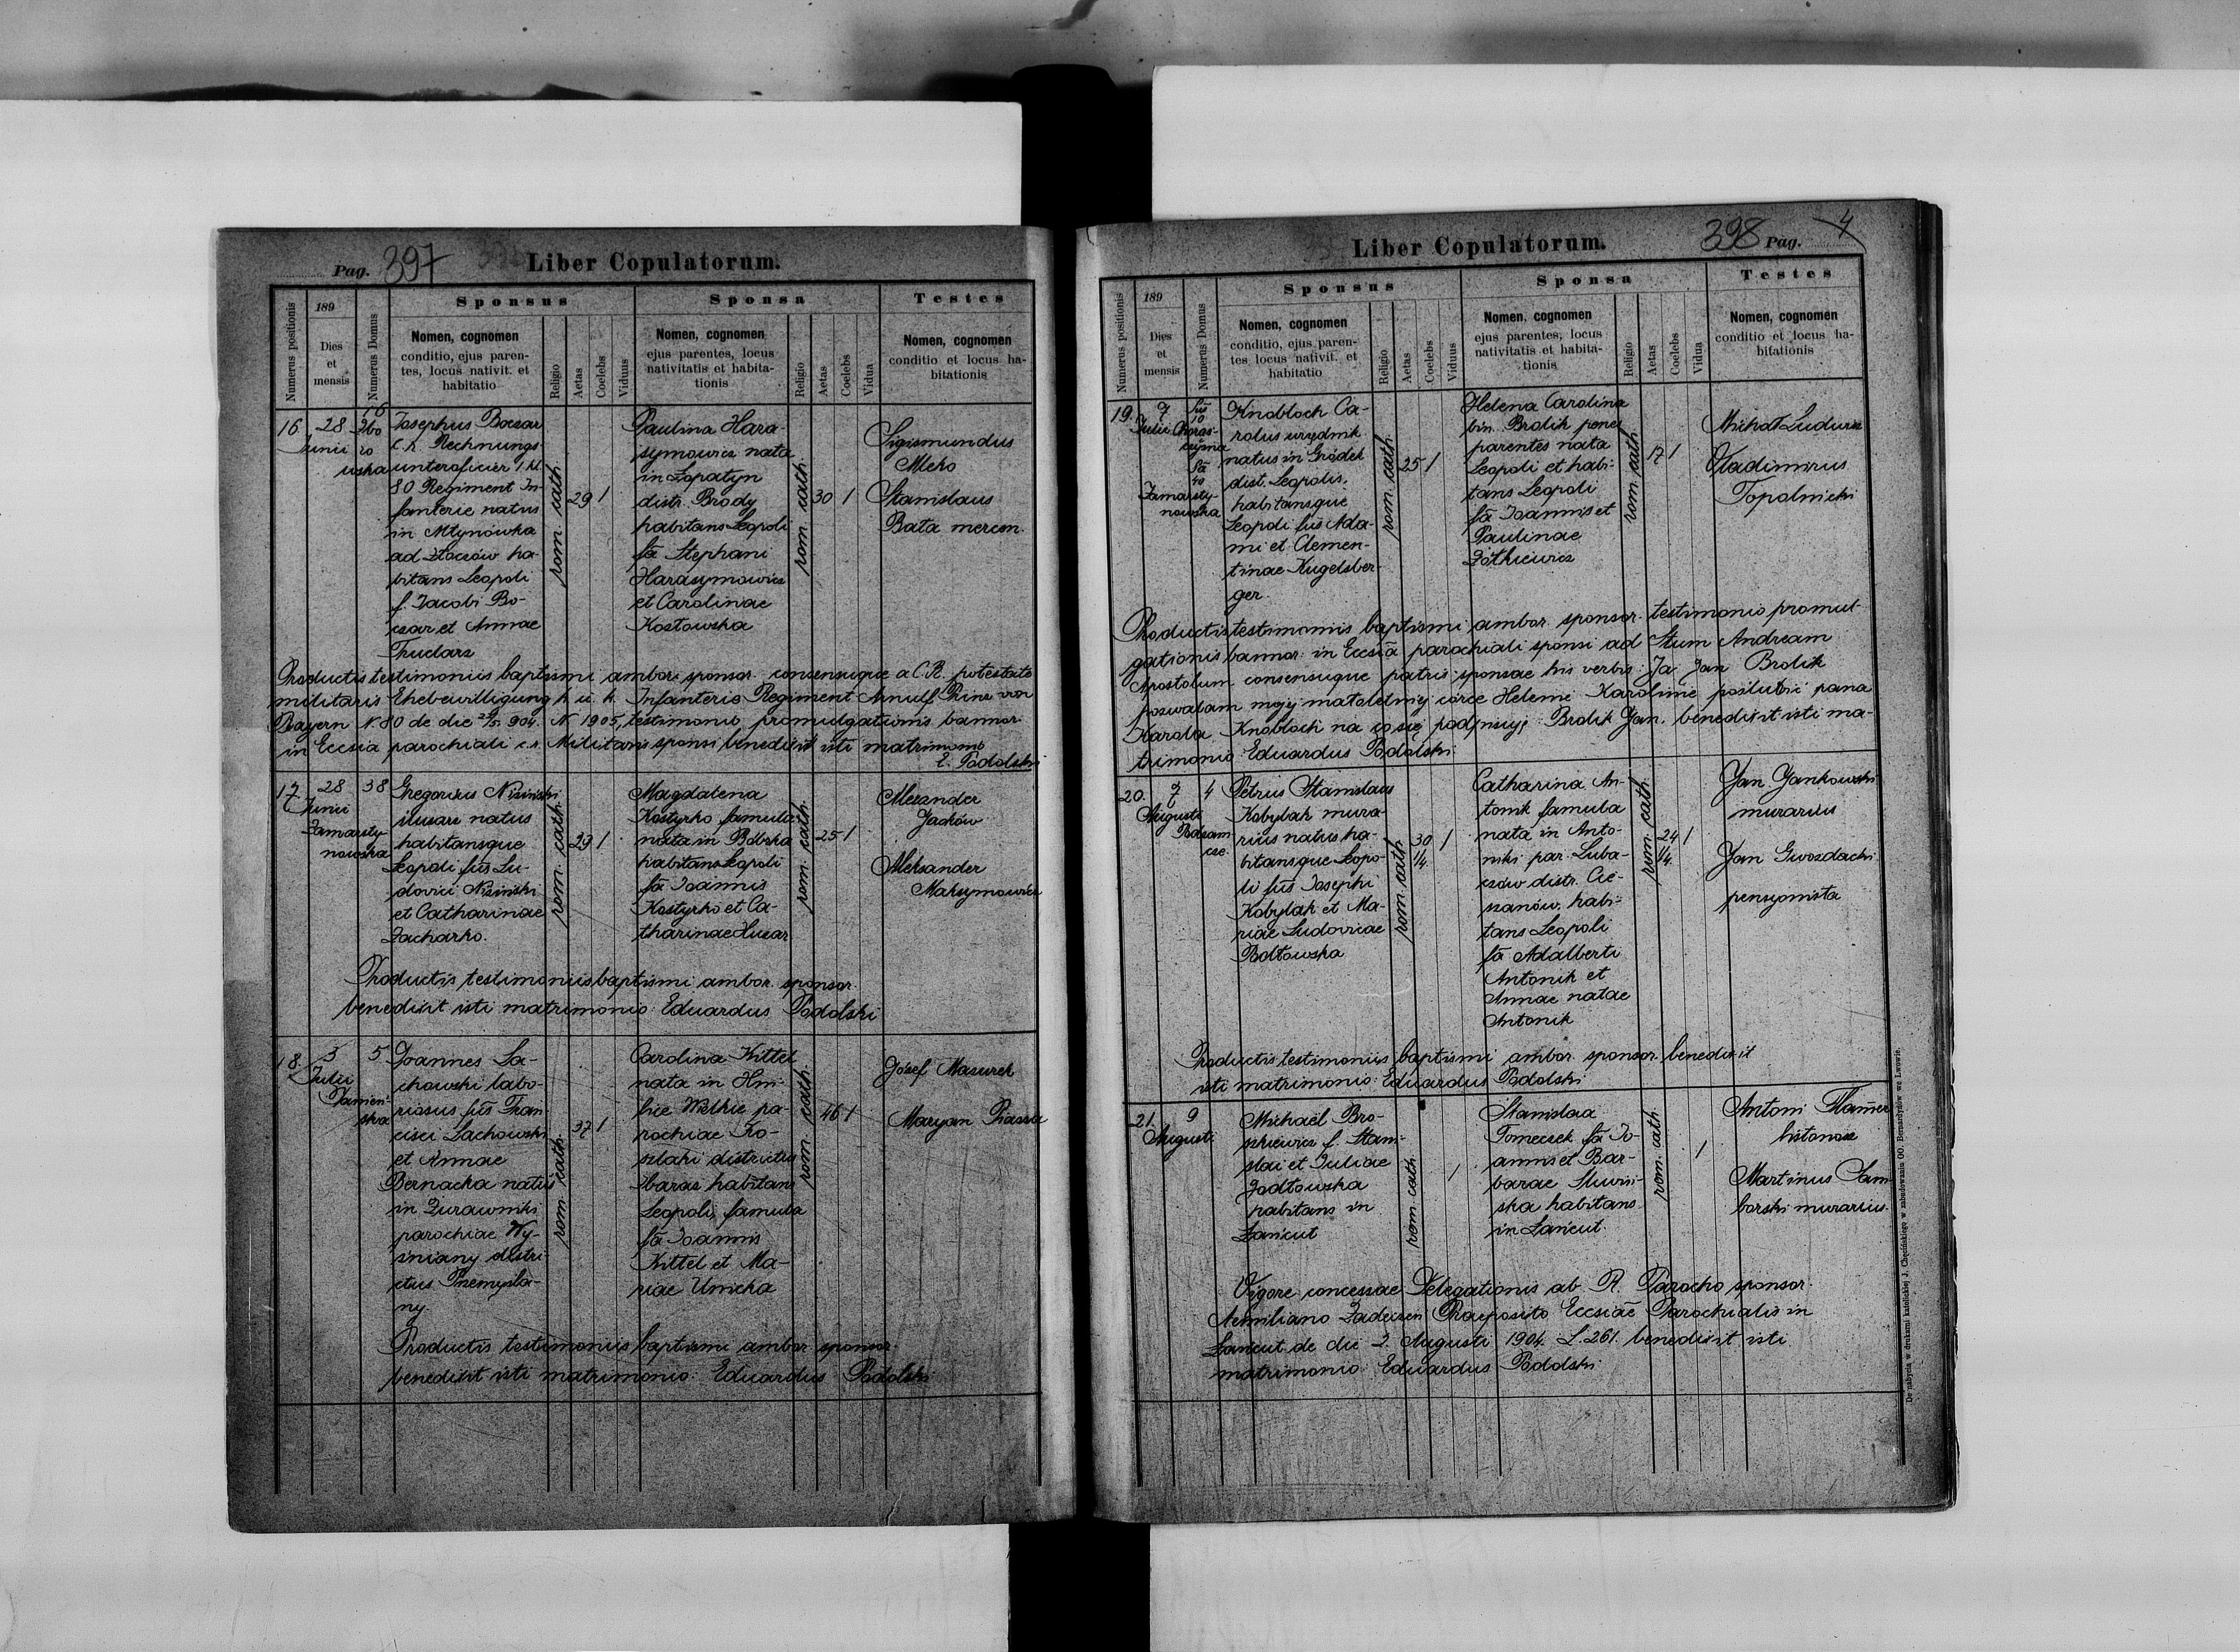 Pag. 397 Liber Copulatorum.
Numerus positionis
189
Dies
et
mensis
Numerus Domus
Sponsus
Nomen, cognomen
conditio, ejus paren-
tes, locus nativit. et
habitatio
Religio
Aetas
Coelebs
Viduus
Sponsa
Nomen, cognomen
ejus parentes, locus
nativitatis et habita-
tionis
Religio
Aetas
Coelebs
Vidua
Testes
Nomen, cognomen
conditio et locus ha-
bitationis
16
28
Junii
Josephus Boczar
c. k. Rechnungs-
unteroficier I. kl.
80 Regiment In-
fanterie natus
in Młynówka
ad Złoczów ha-
bitans Leopoli
f. Jacobi Bo-
czar et Annae
rom. cath.
29 1
Paulina Hara-
symowicz nata
in Łopatyn
distr. Brody
habitans Leopoli
fa Stephani
Harasymowicz
et Carolinae
Kozłowska
rom. cath.
30 1
Sigismundus
Stanislaus
Bata
Productis testimoniis baptismi ambor. sponsor. consensuque a C.R. potestate
militaris Ehebewilligung k. u. k. Infanterie Regiment Arnulf Prinz von
Bayern N. 80 de die 904. N 1905, testimonio promulgationis bannor.
in Eccsia parochiali c.r. Militaris sponsi benedixit isti matrimonio
E. Podolski
17.
28
Junii
Zamarsty-
nowska
38
Gregorius Niziński
natus
habitansque
Leopoli fus Lu-
dovici Niziński
et Catharinae
Zacharko.
rom. cath.
29 1
Magdalena
Kostyrko famula
nata in Bóbrka
habitans Leopoli
fa Joannis
Kostyrko et Ca-
tharinae Huzar
rom. cath.
25 1
Alexander
Jachów
Aleksander
Maksymowicz
Productis testimoniis baptismi ambor. sponsor.
benedixit isti matrimonio: Eduardus Podolski
18.
3
Julii
5
Joannes La-
chowski labo-
riosus fus Fran-
cisci Lachowski
et Annae
Bernacka natus
in Żurawniki
parochiae Wy-
żniany distri-
ctus Przemyśla-
ny.
rom. cath.
37 1
Carolina Kittel
nata in Hni-
lice Wielkie pa-
rochiae Ko-
szlaki districtus
Zbaraż habitans
Leopoli, famula
fa Joannis
Kittel et Ma-
riae Unicka
rom. cath.
46 1
Józef Mazurek
Maryan
Productis testimoniis baptismi ambor. sponsor.
benedixit isti matrimonio: Eduardus Podolski
Liber Copulatorum. 398 Pag. 4
Numerus positionis
189
Dies
et
mensis
Numerus Domus
Sponsus
Nomen, cognomen
conditio, ejus paren-
tes locus nativit. et
habitatio
Religio
Aetas
Coelebs
Viduus
Sponsa
Nomen, cognomen
ejus parentes, locus
nativitatis et habita-
tionis
Religio
Aetas
Coelebs
Vidua
Testes
Nomen, cognomen
conditio et locus ha-
bitationis
19.
7
Julii
fus
10
fa
40
Zamarsty-
nowska
Knobloch Ca-
rolus urzędnik
natus in Gródek
dist. Leopolis,
habitansque
Leopoli fus Ada-
mi et Clemen-
tinae Kugelsber-
ger.
rom. cath.
25 1
Helena Carolina
bin. Brolik penes
parentes nata
Leopoli et habi-
tans Leopoli
fa Joannis et
Paulinae
Żółkiewicz
rom. cath.
17 1
Michał
Vladimirus
Topolnicki
Productis testimoniis baptismi ambor. sponsor. testimonio promul-
gationis bannor. in Eccsia parochiali sponsi ad Stum Andream
Apostolum consensuque patris sponsae his verbis: Ja Jan Brolik
pozwalam mojej małoletniej córce Helenie Karolinie poślubić pana
Karola Knobloch na co się podpisuję: Brolik Jan. benedixit isti ma-
trimonio: Eduardus Podolski
20.
7
Augusti
4
Podzam-
cze.
Petrus Stanislaus
Kobylak mura-
rius natus ha-
bitansque Leopo-
li fus Josephi
Kobylak et Ma-
riae Ludovicae
rom. cath.
30 1
Catharina An-
tonik famula
nata in Anto-
niki par. Luba-
czów distr. Cie-
szanów, habi-
tans Leopoli
fa Adalberti
Antonik et
Annae natae
Antonik
rom. cath.
24 1
Jan Jankowski
murarius
Jan Gwozdacki
pensyonista
Productis testimoniis baptismi ambor. sponsor. benedixit
isti matrimonio: Eduardus Podolski
21.
9
Augusti
Michaël Bro-
szkiewicz f. Stani-
slai et Juliae
Jodłowska
habitans in
Łańcut
rom. cath.
1
Stanislaa
Tomeczek fa Jo-
annis et Bar-
barae Śliwiń-
ska habitans
in Łańcut.
rom. cath.
1
Antoni
Martinus Sam-
borski murarius.
Vigore concessae Delegationis ab R. Parocho sponsor.
Aemiliano Praeposito Eccsiae Parochialis in
Łańcut de die 2. Augusti 1904. L. 261. benedixit isti
matrimonio: Eduardus Podolski.
De nabycia w drukarni katolickiej J. Chęcińskiego w zabudowaniu OO. Bernardynów we Lwowie.